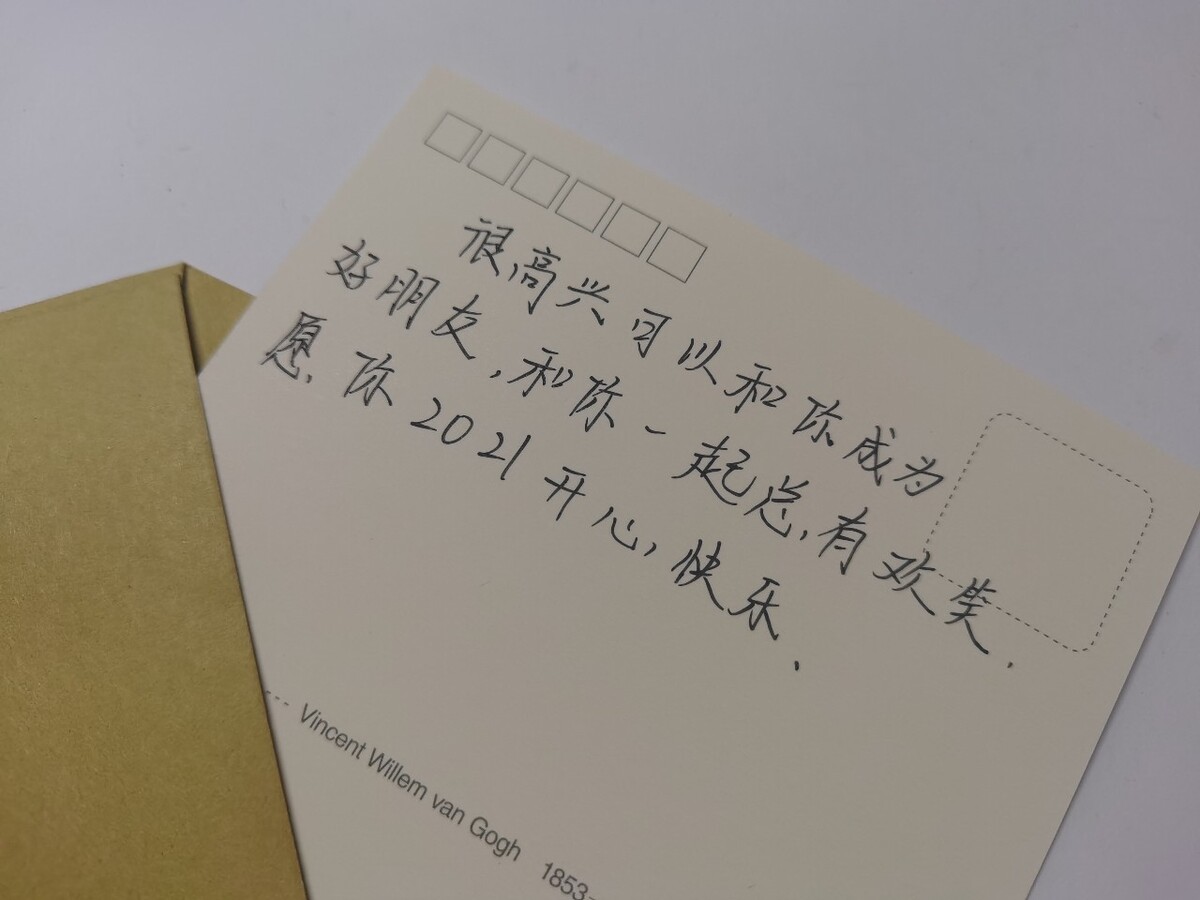 很高兴可以和你成为
好朋友,和你一起总有欢笑.
愿你2021开心,快乐.
Vincent Willem van Gogh 1853-